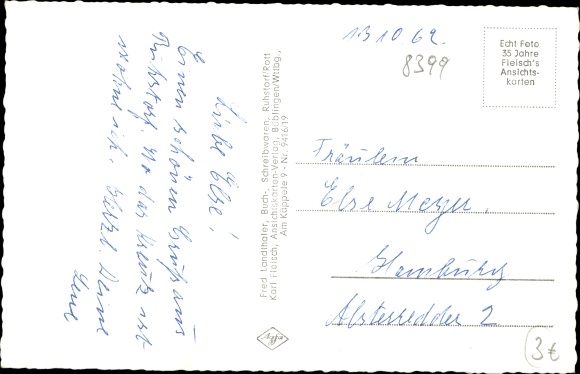 Liebe Else!
Einen schönen Gruß aus
Ruhstorf. Wo das Kreutz ist
wohne ich. Herzl. Deine
Lene
Fred Landthaler, Buch-, Schreibwaren, Ruhstorf/Rott
Karl Fleisch, Ansichtskarten-Verlag, Böblingen/Wttbg.,
Am Käppele 9 - Nr. 9416/19
13 10 69.
8399
Echt Foto
35 Jahre
Fleisch's
Ansichts-
karten
Fräulein
Else Mezger,
Hamburg
Alsterredder 2
Agfa
3€